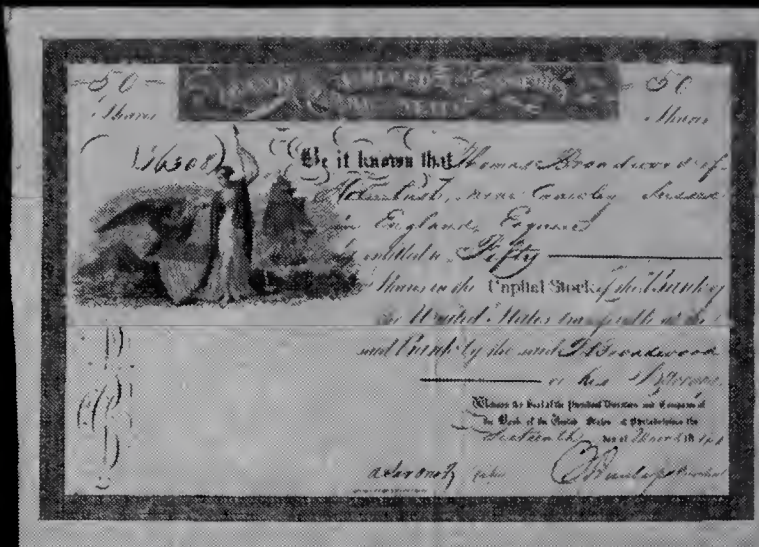 50 50
Shares Shares
BANK UNITED STATES
Be it known that Thomas Broadwood of
near Crawley Sussex
in England, Esquire
is entitled to Fifty
Shares in the Capital Stock of the Bank of
the United States transferable at the
said Bank by the said T Broadwood
or his Attorney.
Witness the Seal of the President Directors and Company of
the Bank of the United States at Philadelphia the
Sixteenth day of March 18
Cashier Dunlap President